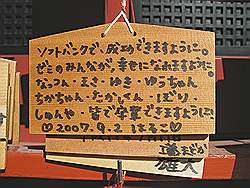 ソフトバンクで、成功できますように。
ゼミのみんなが、幸せになれますように。
なっつん・えき・ゆき・ゆうちゃん
ちかちゃん・たかしくん・ぽり・
しゅんや・皆で卒業できますように。
♡2007.9.2 はるこ♡
雄大